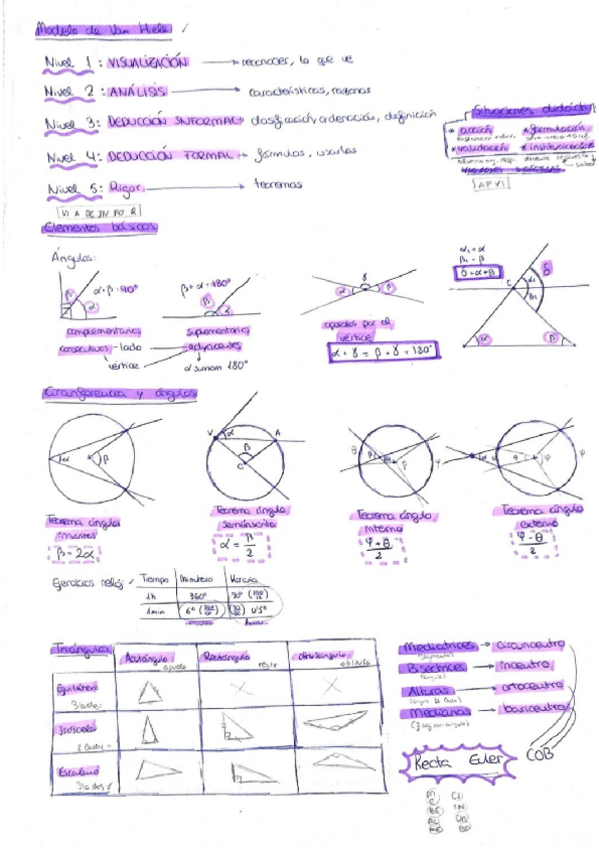 Modelo de Van Hiele
Nivel 1: VISUALIZACIÓN → reconocer, lo que ve
Nivel 2: ANÁLISIS → características, razonas
Nivel 3: DEDUCCIÓN INFORMAL → clasificación, ordenación, definición
Nivel 4: DEDUCCIÓN FORMAL → fórmulas, usarlas
Nivel 5: Rigor → teoremas
VI A DE IN FO R
Situaciones didácti
* acción * formulación
* validación
AFVI
Elementos básicos
Ángulos:
α+β=90°
complementarios
consecutivos - lado
vértice
β+α=180°
suplementario
adyacentes
α suman 180°
opuestos por el
vértice
α+γ=β+γ=180°
α₁=α
β₁=β
δ=α+β
Circunferencia y ángulos
Teorema ángulo
β=2α
Teorema ángulo
semiinscrito
α=β/2
Teorema ángulo
interno
φ+θ/2
Teorema ángulo
externo
φ-θ/2
Ejercicios reloj
Tiempo Minutero Horaria
1h 360°
1min 6° 0'5°
Triángulos
Acutángulo agudo
Rectángulo recto
Obtusángulo obtuso
Equilátero
Isósceles
Escaleno
Mediatrices → circuncentro
Bisectrices → incentro
Alturas → ortocentro
Medianas → baricentro
Recta Euler
COB
M CI
BI IN
AL OR
ME BA